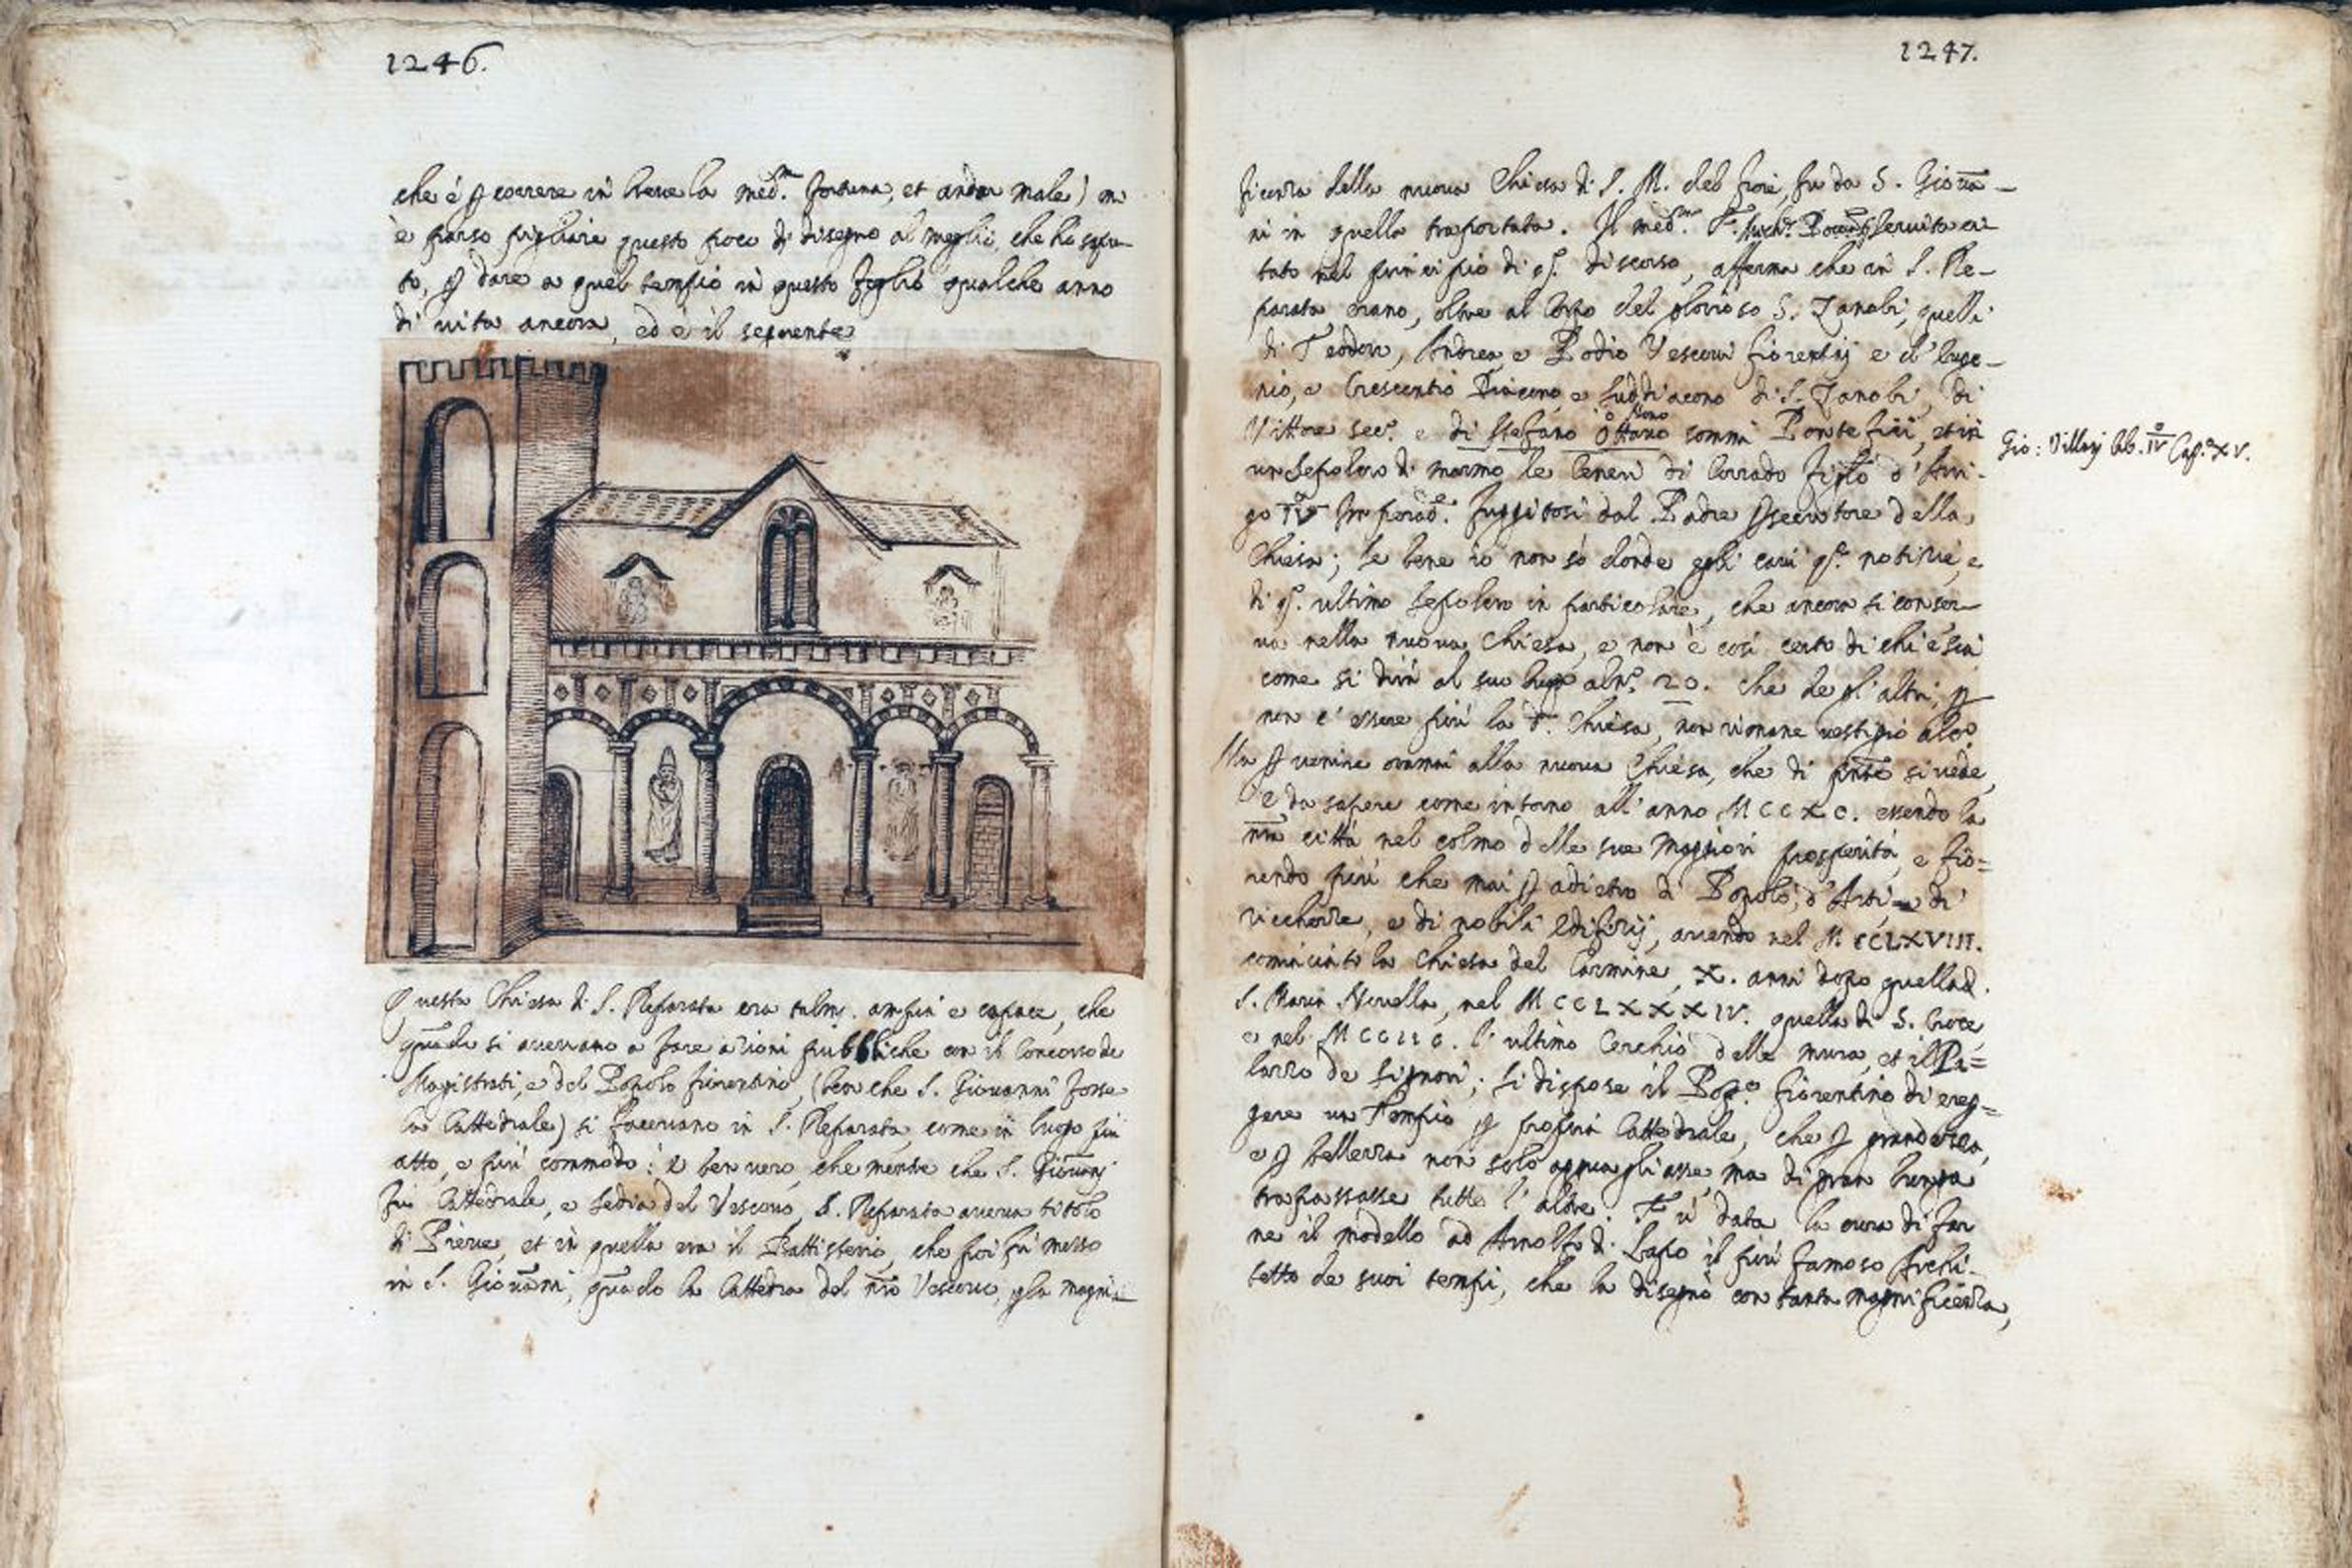 1246.
che è p correre in breve la med.ᵐᵃ fortuna, et andar male) m
è parso pigliare questo poco di disegno al meglio, che ho sapu-
to, p dare a quel tempio in questo foglio qualche anno
di vita ancora, ed è il seguente
Questa Chiesa di S. Reparata era talm. ampia e capace, che
quādo si avevano a fare azioni pubbliche con il Concorso de
Magistrati, e del Popolo fiorentino, (ben che S. Giovanni fosse
la Cattedrale) si facevano in S. Reparata, come in luogo piu
atto, e piu commodo: è ben vero, che mentre che S. Giovanj
fu Cattedrale, e Sedia del Vescovo, S. Reparata aveva titolo
di Pieve, et in quella era il Battisterio, che poi fu messo
in S. Giovāni, quādo la Cattedra del nr̄o Vescovo, p la magni-
1247.
ficenza della nuova Chiesa di S. M. del fiore, fu da S. Giovā-
ni in quella trasportata. Il med.ᵐᵒ F. Servita ci-
tato nel principio di qſ. discorso, afferma che in S. Re-
parata erano, oltre al Corpo del glorioso S. Zanobi, quelli
di Teodoro, Andrea e Podio Vescovi fiorentinj e d'Euge-
nio, e Crescentio Diacono e Suddiacono di S. Zanobi, di
Vittore sec.º e di Stefano Ottavo Nono sommi Pontefici, et in
un Sepolcro di marmo le Ceneri di Corrado figlo d'Arri-
go IV Imperad.ᵉ fuggitosi dal Padre psecutore della
Chiesa; se bene io non sò donde egli cavi qſ. notizie, e
di qſ. ultimo Sepolcro in particolare, che ancora si conser-
va nella nuova Chiesa, e non è così certo di chi e' sia
come si dirà al suo luogo al nº. 20. che de gl'altri, p
non c'essere più la d. Chiesa, non rimane vestigio alcº.
Ma p venire ormai alla nuova Chiesa, che di pn̄te si vede,
è da sapere come intorno all'anno MCCXC. essendo la
nr̄a città nel colmo delle sue maggiori prosperità, e fio=
rendo più che mai p adietro di Popolo, d'Arti, e di
ricchezze, e di nobili Edifizij, avendo nel MCCLXVIII.
cominciato la Chiesa del Carmine, X. anni dopo quella d.
S. Maria Novella, nel MCCLXXXIV. quella di S. Croce
e nel MCCIIC. l'ultimo Cerchio delle mura, et il Pa=
lazzo de Signori; si dispose il Pop.º fiorentino di ereg=
gere un Tempio p propria Cattedrale, che p grandezza,
e p bellezza non solo agguagliasse, ma di gran lunga
trapassasse tutte l'altre. Fu data la cura di far
ne il modello ad Arnolfo di Lapo il più famoso Archi-
tetto de suoi tempi, che la disegnò con tanta magnificenza,
Gio: Villanj lib. IV Cap.º XV.